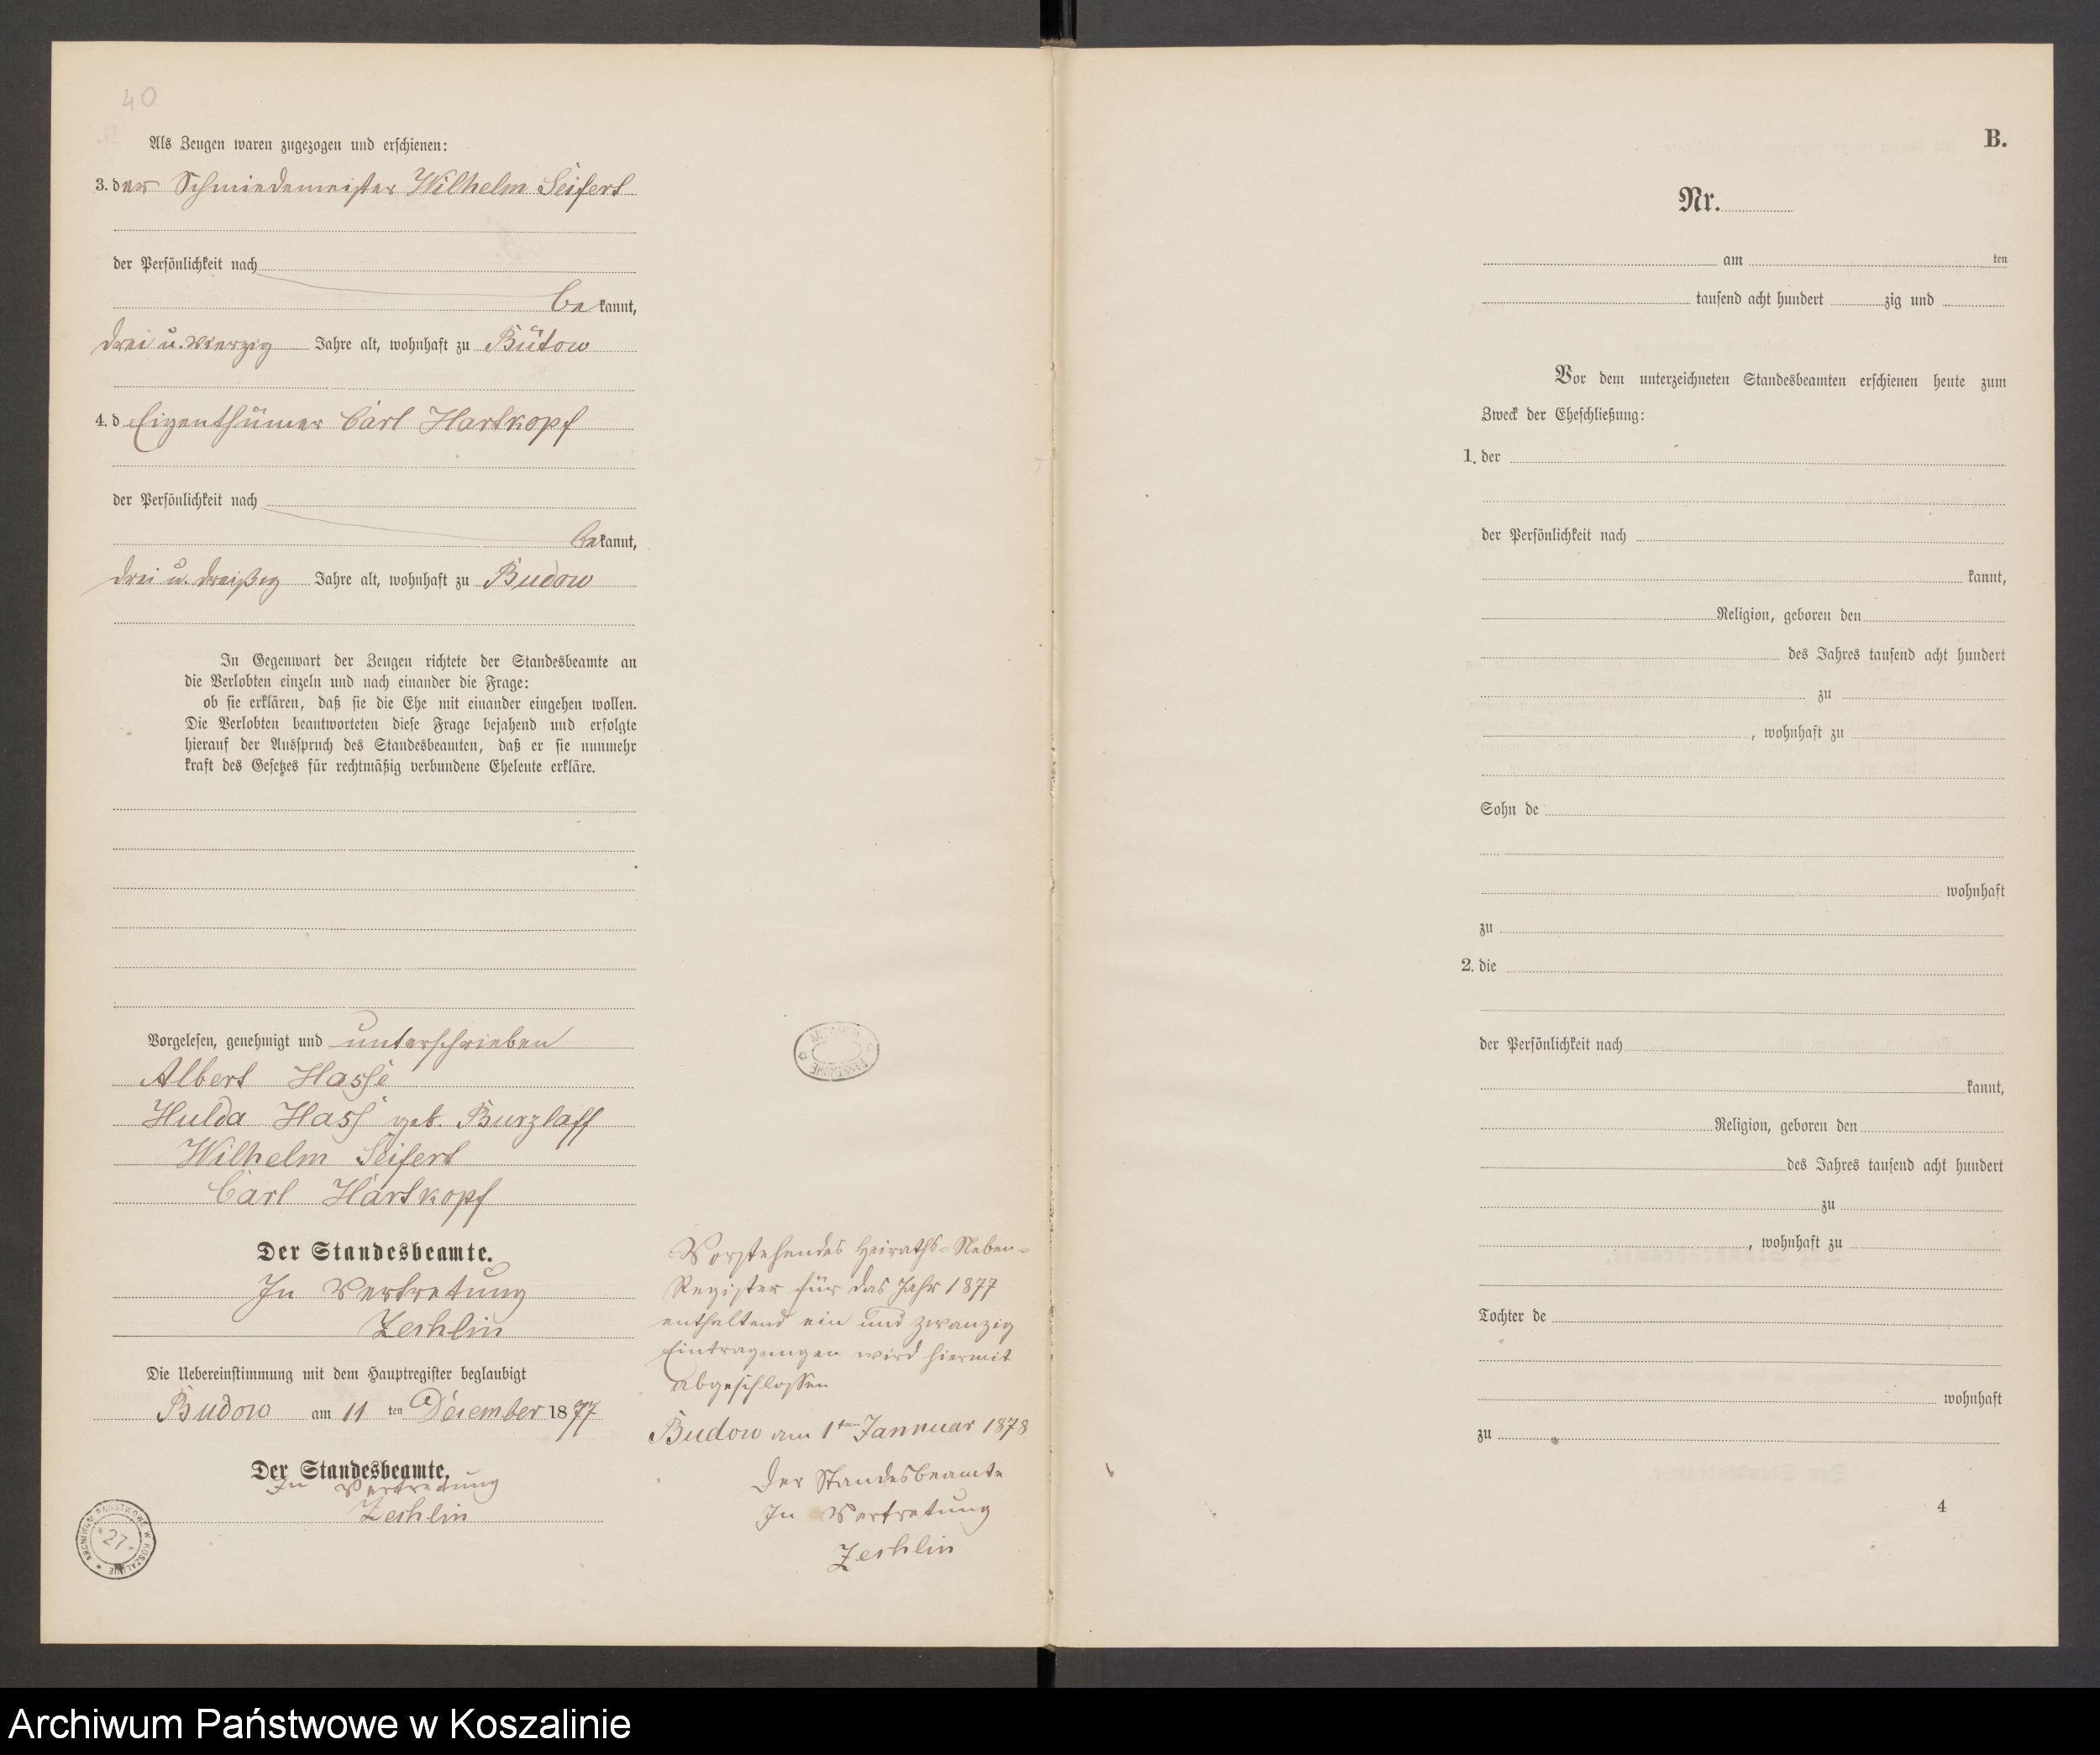 40
Als Zeugen waren zugezogen und erschienen:
3. der Schmiedemeister Wilhelm Seifert
der Persönlichkeit nach
bekannt,
drei u. vierzig Jahre alt, wohnhaft zu Bütow
4. d Eigenthümer Carl Hartkopf
der Persönlichkeit nach
bekannt,
drei u. dreißig Jahre alt, wohnhaft zu Budow
In Gegenwart der Zeugen richtete der Standesbeamte an
die Verlobten einzeln und nach einander die Frage:
ob sie erklären, daß sie die Ehe mit einander eingehen wollen.
Die Verlobten beantworteten diese Frage bejahend und erfolgte
hierauf der Ausspruch des Standesbeamten, daß er sie nunmehr
kraft des Gesetzes für rechtmäßig verbundene Eheleute erkläre.
Vorgelesen, genehmigt und unterschrieben
Albert Hasse
Hulda Hass geb. Burzlaff
Wilhelm Seifert
Carl Hartkopf
Der Standesbeamte.
In Vertretung
Zechlin
Die Uebereinstimmung mit dem Hauptregister beglaubigt
Budow am 11 ten December 1877
Der Standesbeamte.
In Vertretung
Zechlin
ARCHIWUM PAŃSTWOWE W KOSZALINIE
27
Vorstehendes Heiraths-Neben-
Register für das Jahr 1877
enthaltend ein und zwanzig
Eintragungen wird hiermit
abgeschlossen
Budow am 1ten Jannuar 1878
Der Standesbeamte
In Vertretung
Zechlin
B.
Nr.
am ten
tausend acht hundert zig und
Vor dem unterzeichneten Standesbeamten erschienen heute zum
Zweck der Eheschließung:
1. der
der Persönlichkeit nach
kannt,
Religion, geboren den
des Jahres tausend acht hundert
zu
, wohnhaft zu
Sohn de
wohnhaft
zu
2. die
der Persönlichkeit nach
kannt,
Religion, geboren den
des Jahres tausend acht hundert
zu
, wohnhaft zu
Tochter de
wohnhaft
zu
4
Archiwum Państwowe w Koszalinie